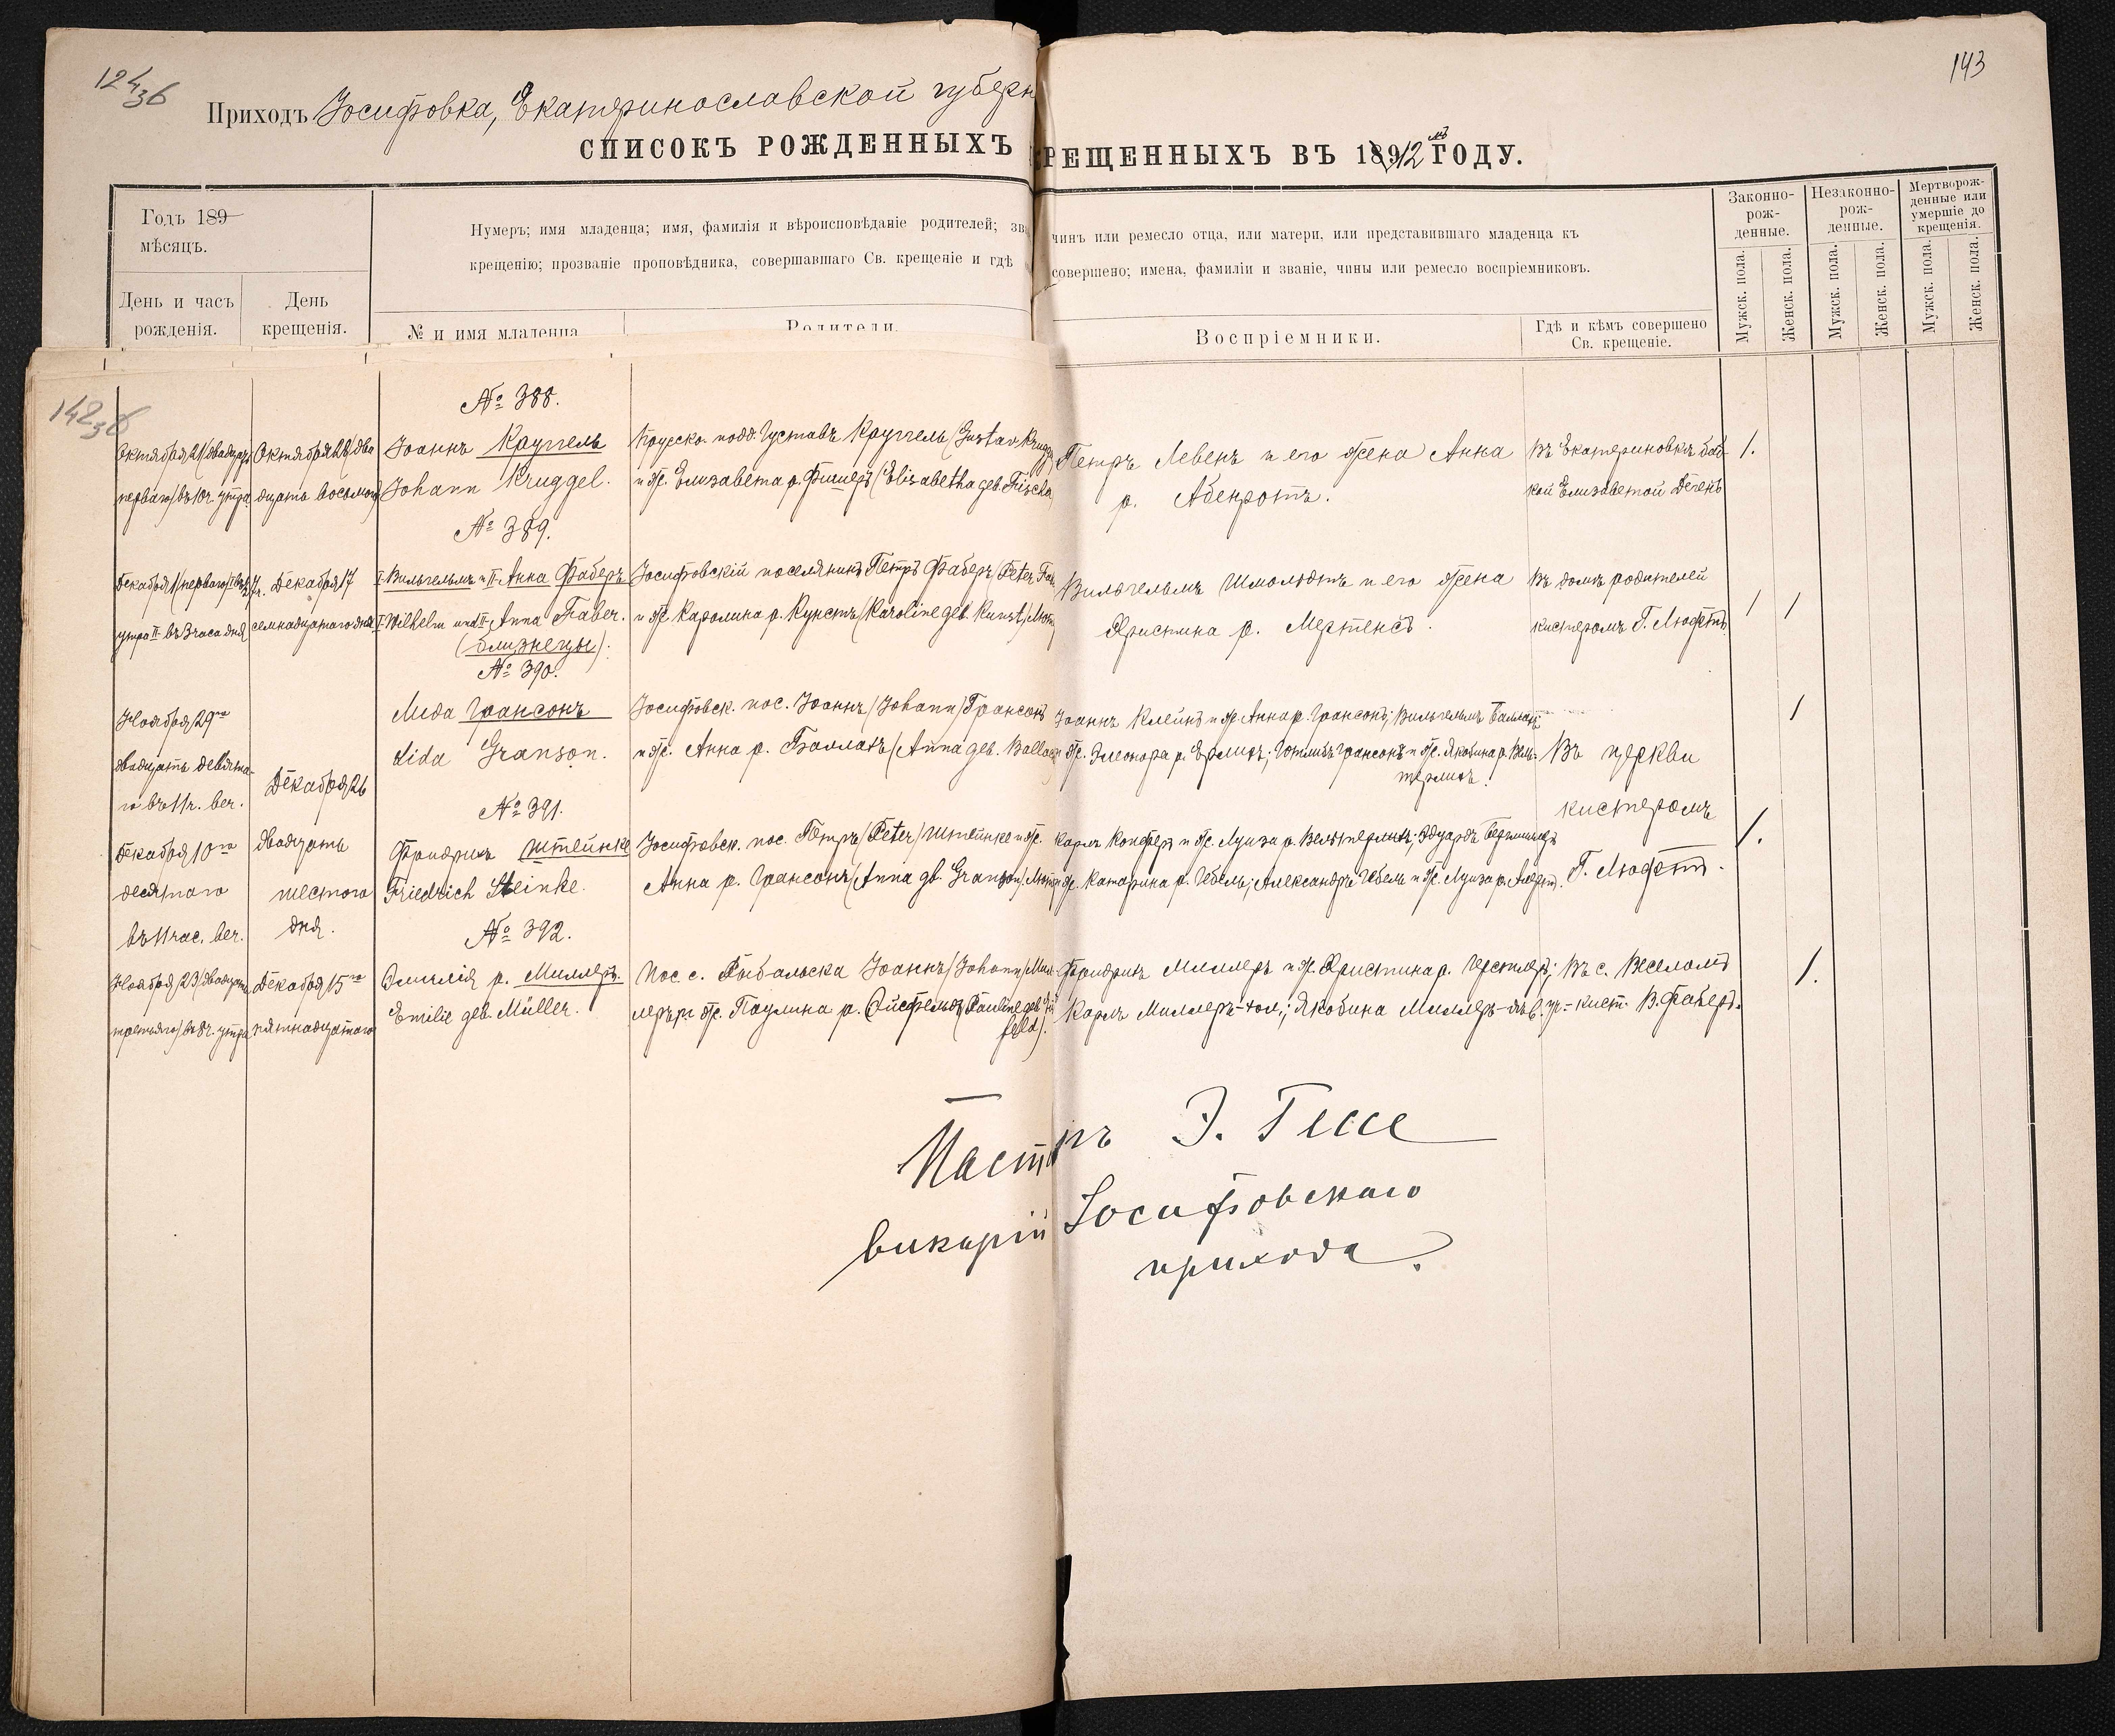 124
36
143
Приходъ Іосифовка, Екатеринославской губерн
СПИСОКЪ РОЖДЕННЫХЪ РЕЩЕННЫХЪ ВЪ 18912 мъ ГОДУ.
Годъ 189
мѣсяцъ.
День и часъ рожденія.
День крещенія.
Нумеръ; имя младенца; имя, фамилія и вѣроисповѣданіе родителей; зва чинъ или ремесло отца, или матери, или представившаго младенца къ
крещенію; прозваніе проповѣдника, совершавшаго Св. крещеніе и гдѣ совершено; имена, фамиліи и званіе, чины или ремесло воспріемниковъ.
№ и имя младенца
Родители.
Воспріемники.
Гдѣ и кѣмъ совершено Св. крещеніе.
Законно-рож-денные.
Незаконно-рож-денные.
Мертворож-денные или умершіе до крещенія.
Мужск. пола.
Женск. пола.
Мужск. пола.
Женск. пола.
Мужск. пола.
Женск. пола.
142
36
№ 388.
Октября 21/двадцать
перваго/въ 10 ч. утра
Октября 28/два
дцать восьмого
Іоаннъ Круггель
Johann Kruggel.
Прусско. подд. Густавъ Круггель/Gustav Krugg
и ж. Елизавета р. Фишеръ/Elisabetha geb. Fische
Петръ Левенъ и его жена Анна
р. Абенротъ.
Въ Екатериновкѣ баб-
кой Елизаветой Дегенъ
1.
№ 389.
Декабря 1/перваго/
утра II въ 3 часа дня
Декабря 17
семнадцатаго дня
I Вильгельмъ и II Анна Фаберъ
I Wilhelm und II Anna Faber.
(близнецы).
Іосифовскій поселянинъ Петръ Фаберъ/Peter Fa
и ж. Каролина р. Кунстъ/Karoline geb. Kunst/Лют
Вильгельмъ Шмолютъ и его жена
Христина р. Мертенсъ.
Въ домѣ родителей
кистеромъ Г. Люфтъ
1 1
№ 390.
Ноября 29го
двадцать девята-
го въ 11 ч. веч.
Декабря 26
двадцать
шестого
дня.
Лида Грансонъ
Lida Granson.
Іосифовск. пос. Іоаннъ/Johann/Грансонъ
и ж. Анна р. Баллахъ/Anna geb. Balla
Іоаннъ Клейнъ и ж. Анна р. Грансонъ; Вильгельмъ Баллахъ
и ж. Элеонора р. Эрлихъ; Готлибъ Грансонъ и ж. Якобина р. Вель-
терлихъ.
Въ церкви
кистеромъ
Г. Люфтъ.
1
№ 391.
Декабря 10го
десятаго
въ 11 час. веч.
Фридрихъ Штейнке
Friedrich Steinke.
Іосифовск. пос. Петръ/Peter/Штейнке и ж.
Анна р. Грансонъ/Anna gb. Granson/Лют
Карлъ Конферъ и ж. Луиза р. Вельтерлихъ; Эдуардъ
и ж. Катарина р. Гебель; Александръ Гебель и ж. Луиза р.
1.
№ 392.
Ноября 23/двадцать
третьяго/въ 8 ч. утра
Декабря 15го
пятнадцатаго
Эмилія р. Миллеръ.
Emilie geb. Müller.
Пос. с. Рыбальска Іоаннъ/Johann/Мил-
леръ и ж. Паулина р. Эйсфельдъ/Pauline geb.
feld).
Фридрихъ Миллеръ и ж. Христина р. Герстлеръ;
Карлъ Миллеръ-хол.; Якобина Миллеръ-дѣв.
Въ с. Веселомъ
кист. В. Фаберъ.
1.
Пасторъ Э. Гессе
викарій Іосифовскаго
прихода.